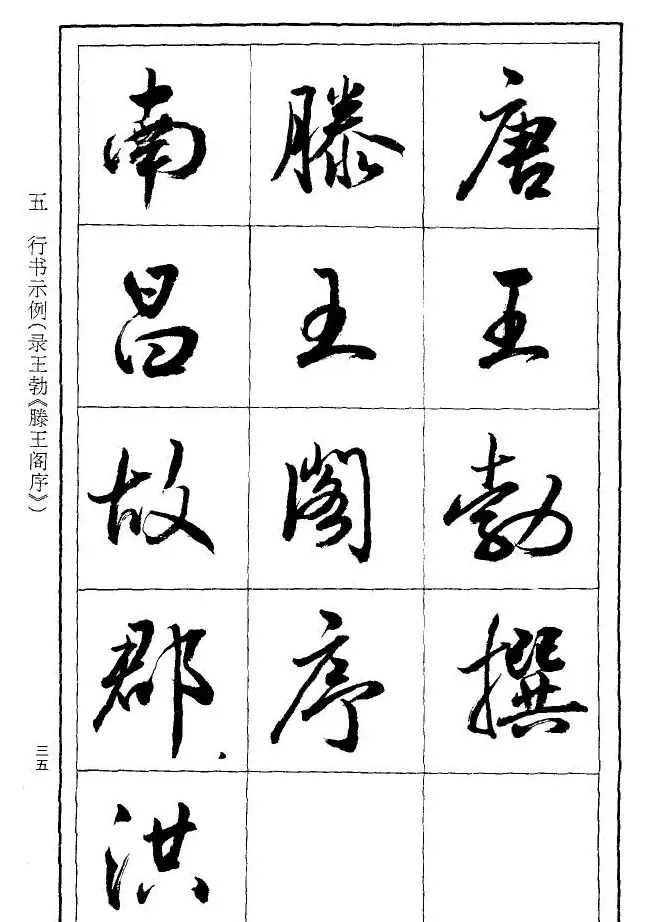 唐王勃撰
滕王阁序
南昌故郡洪
五 行书示例（录王勃《滕王阁序》）
三五